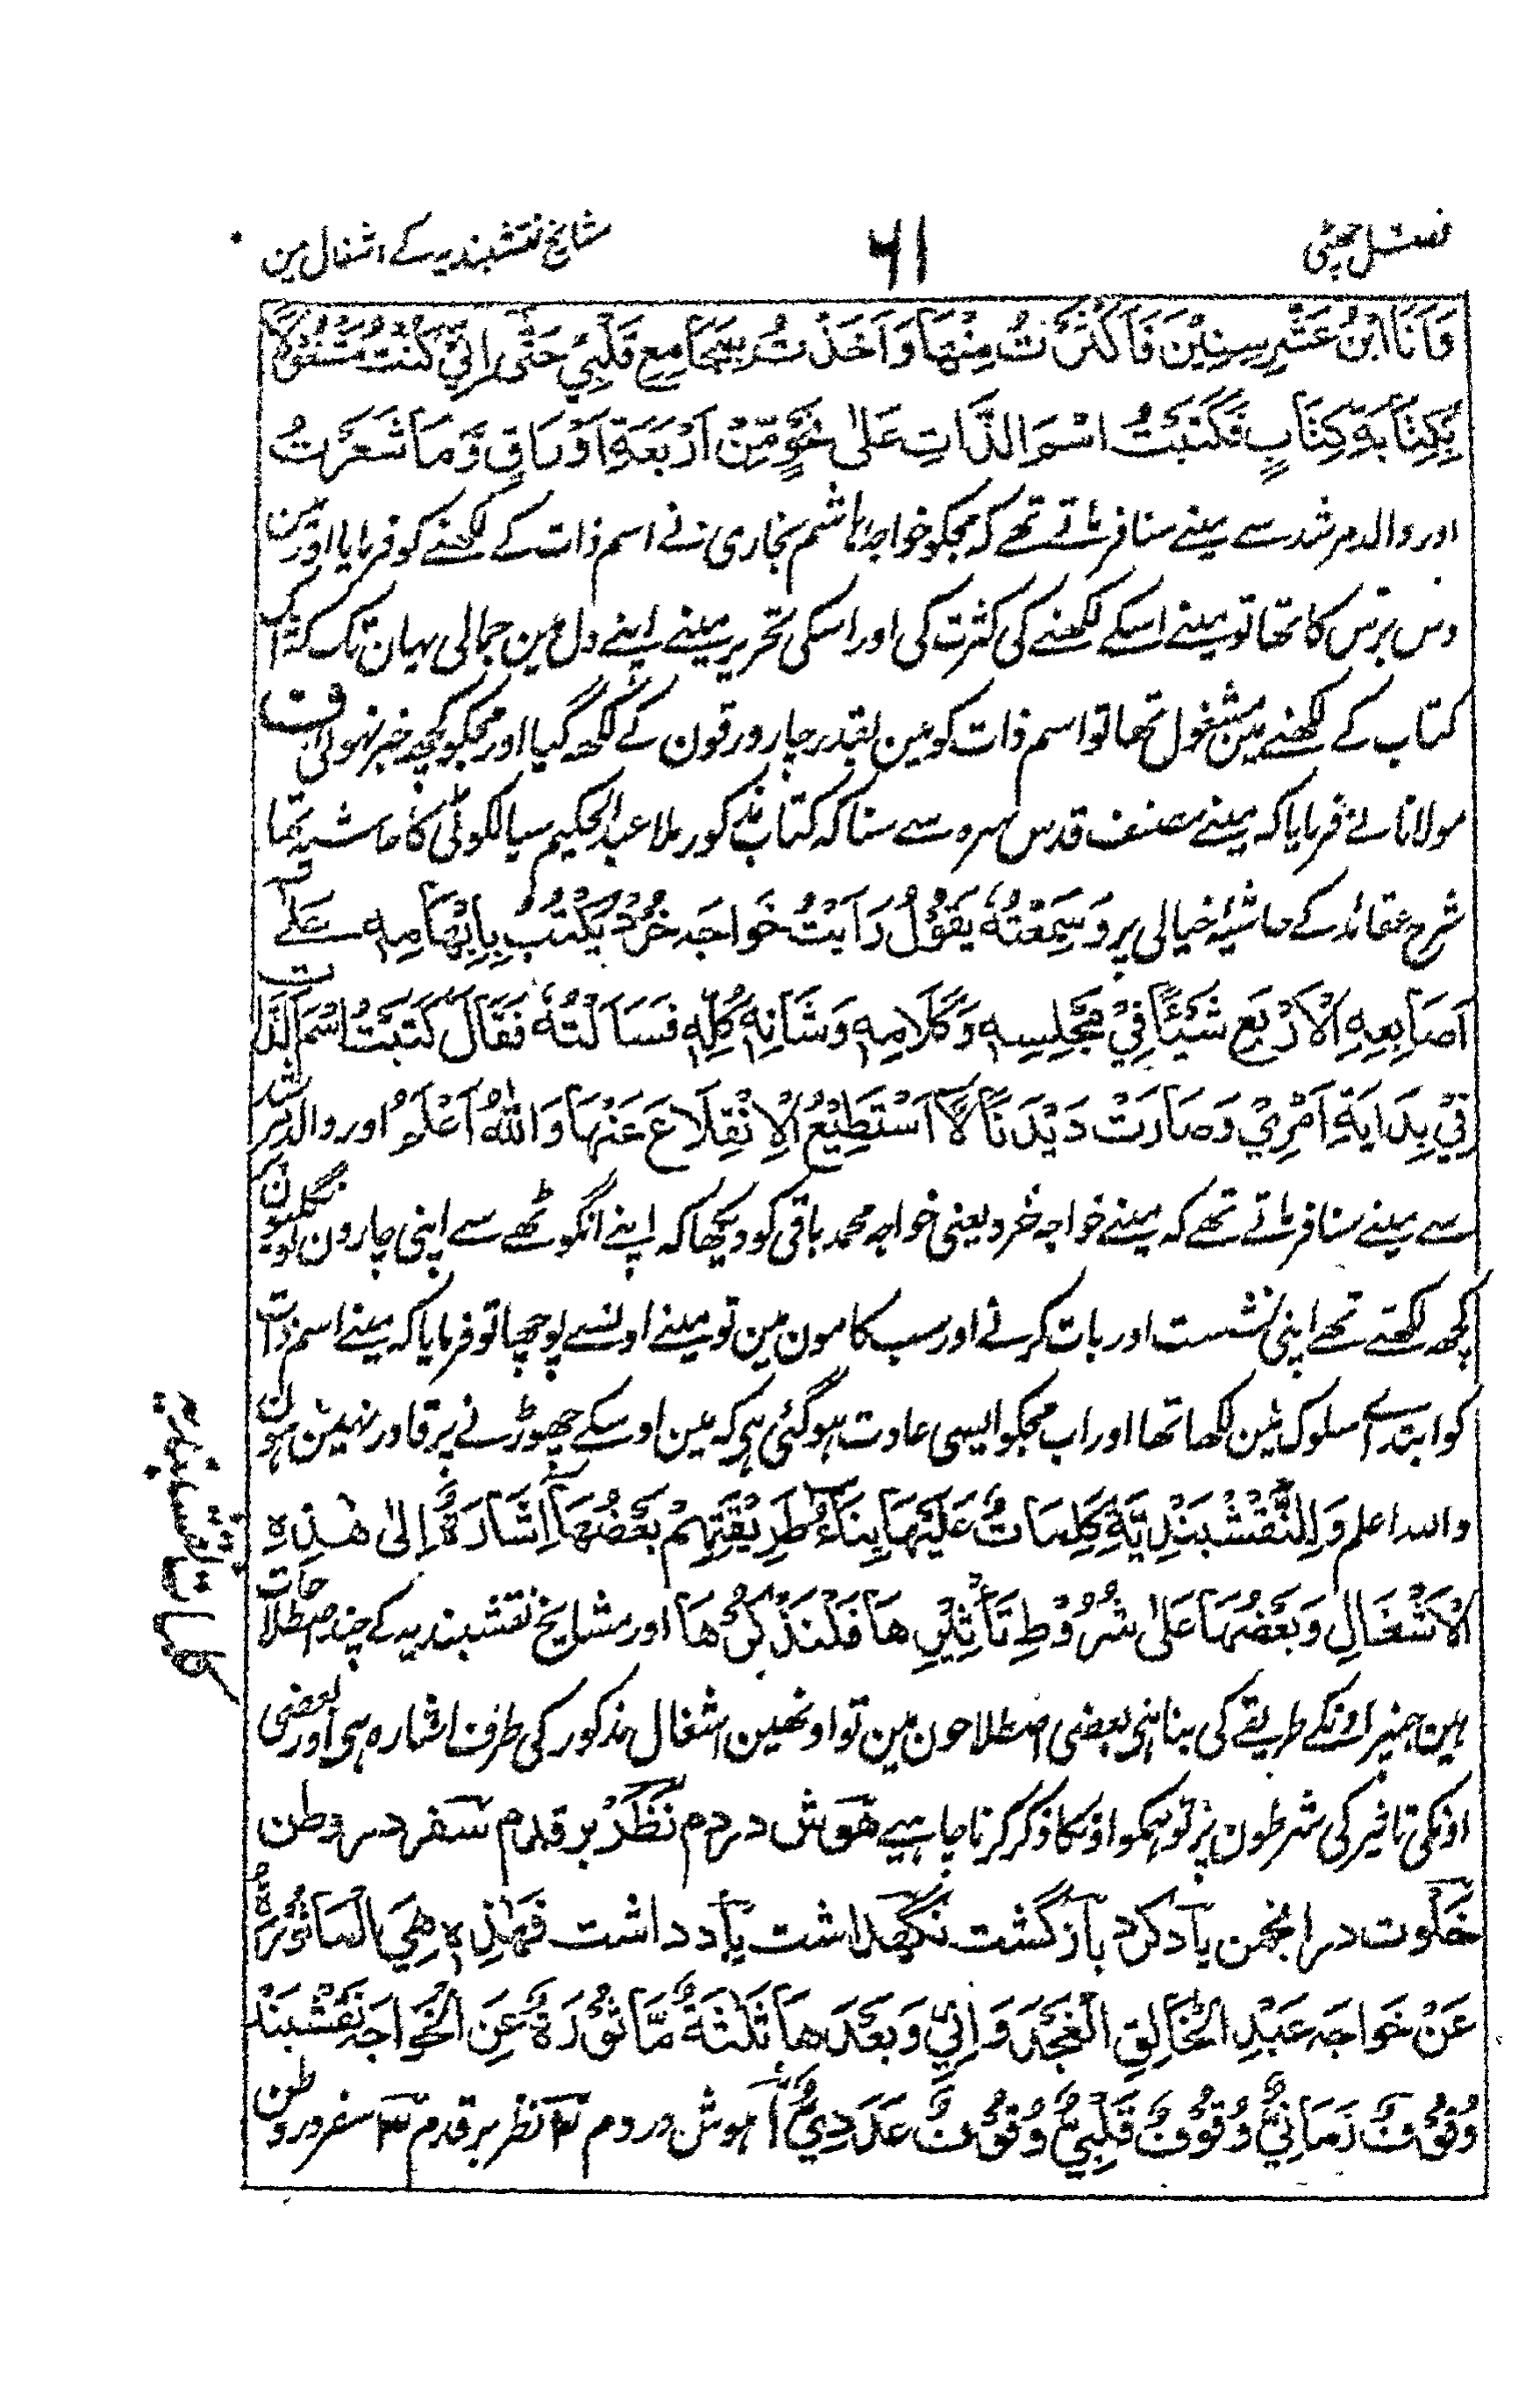 فصل چھٹی
۶۱
مشایخ نقشبندیہ کے اشغال مین
وَاَنَا ابْنُ عَشْرِ سِنِیْنَ فَاَکْثَرْتُ مِنْهَا وَاَخَذْتُ بِمَجَامِعِ قَلْبِیْ حَتّٰی اِنِّیْ کُنْتُ مَشْغُوْلًا
بِکِتَابَةِ کِتَابٍ فَکَتَبْتُ اسْمَ الذَّاتِ عَلٰی نَحْوٍ مِّنْ اَرْبَعَةِ اَوْرَاقٍ وَّمَا شَعَرْتُ
اور والد مرشد سے مینے سنا فرماتے تھے کہ مجکو خواجہ ہاشم بخاری نے اسم ذات کے لکھنے کو فرمایا اور مین
دس برس کا تھا تو مینے اسکے لکھنے کی کثرت کی اور اسکی تحریر مینے اپنے دل مین جمالی یہان تک کہ ایک
کتاب کے لکھنے مین مشغول تھا تو اسم ذات کو مین بقدر چار ورقون کے لکھ گیا اور مجکو کچھ خبر نہوئی ف
مولانا نے فرمایا کہ مینے مصنف قدس سرہ سے سنا کہ کتاب مذکور ملا عبد الحکیم سیالکوٹی کا حاشیہ تھا
شرح عقائد کے حاشیہ خیالی پر وَسَمِعْتُهٗ یَقُوْلُ رَاَیْتُ خَواجَه خُرْد یَکْتُبُ بِاِبْهَامِهٖ عَلٰی
اَصَابِعِهِ الْاَرْبَعِ شَیْئًا فِیْ مَجْلِسِهٖ وَکَلَامِهٖ وَشَانِهٖ کُلِّهٖ فَسَاَلْتُهٗ فَقَالَ کَتَبْتُ اسْمَ الذَّاتِ
فِیْ بِدَایَةِ اَمْرِیْ وَصَارَتْ دَیْدَنًا لَّا اَسْتَطِیْعُ الْاِنْقِلَاعَ عَنْهَا وَاللّٰهُ اَعْلَمُ اور والد مرشد
سے مینے سنا فرماتے تھے کہ مینے خواجہ خرد یعنی خواجہ محمد باقی کو دیکھا کہ اپنے انگوٹھے سے اپنی چارون انگلیون کو
کچھ لکھتے تھے اپنی نشست اور بات کرنے اور سب کامون مین تو مینے اونسے پوچھا تو فرمایا کہ مینے اسم ذات
کو ابتداے سلوک مین لکھا تھا اور اب مجکو ایسی عادت ہو گئی ہی کہ مین اوسکے چھوڑنے پر قادر نہین ہون
واللہ اعلم وَلِلنَّقْشْبَنْدِیَّةِ کَلِمَاتٌ عَلَیْهَا بِنَاءُ طَرِیْقَتِهِمْ بَعْضُهَا اِشَارَةٌ اِلٰی هٰذِهِ
الْاَشْغَالِ وَبَعْضُهَا عَلٰی شُرُوْطِ تَاْثِیْرِهَا فَلْنَذْکُرْهَا اور مشایخ نقشبندیہ کے چند اصطلاحات
ہین جنپر اونکے طریقے کی بنا ہی بعضی اصطلاحون مین تو اونھین اشغال مذکور کی طرف اشارہ ہی اور بعضی
اونکی تاثیر کی شرطون پر تو ہمکو اونکا ذکر کرنا چاہیے هوش در دم نظر بر قدم سفر در وطن
خلوت در انجمن یاد کرد بازگشت نگهداشت یاد داشت فَهٰذِهٖ هِیَ الْمَاثُوْرَةُ
عَنْ خَواجَه عَبْدِ الْخَالِقِ الْغُجْدَوَانِیِّ وَبَعْدَهَا ثَلٰثَةٌ مَّاثُوْرَةٌ عَنِ الْخَواجَه نَقْشْبَنْد
وُقُوْفٌ زَمَانِیٌّ وُقُوْفٌ قَلْبِیٌّ وُقُوْفٌ عَدَدِیٌّ ۱ ہوش در دم ۲ نظر بر قدم ۳ سفر در وطن
کلمات نقشبندیہ